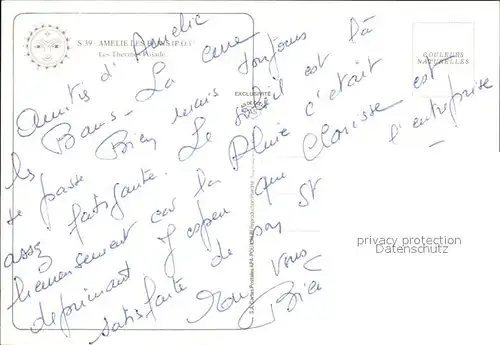 S 39 - AMELIE LES BAINS (P.O.)
Les Thermes
COULEURS
NATURELLES
EXCLUSIVITÉ
Amitiés d'Amélie
les Bains - La cure
se passe Bien mais toujours
assez fatigante. Le soleil est là
heureusement car la Pluie c'était
déprimant J'espère que Clarisse est
satisfaite de son St
l'entreprise
vous
privacy protection
Datenschutz